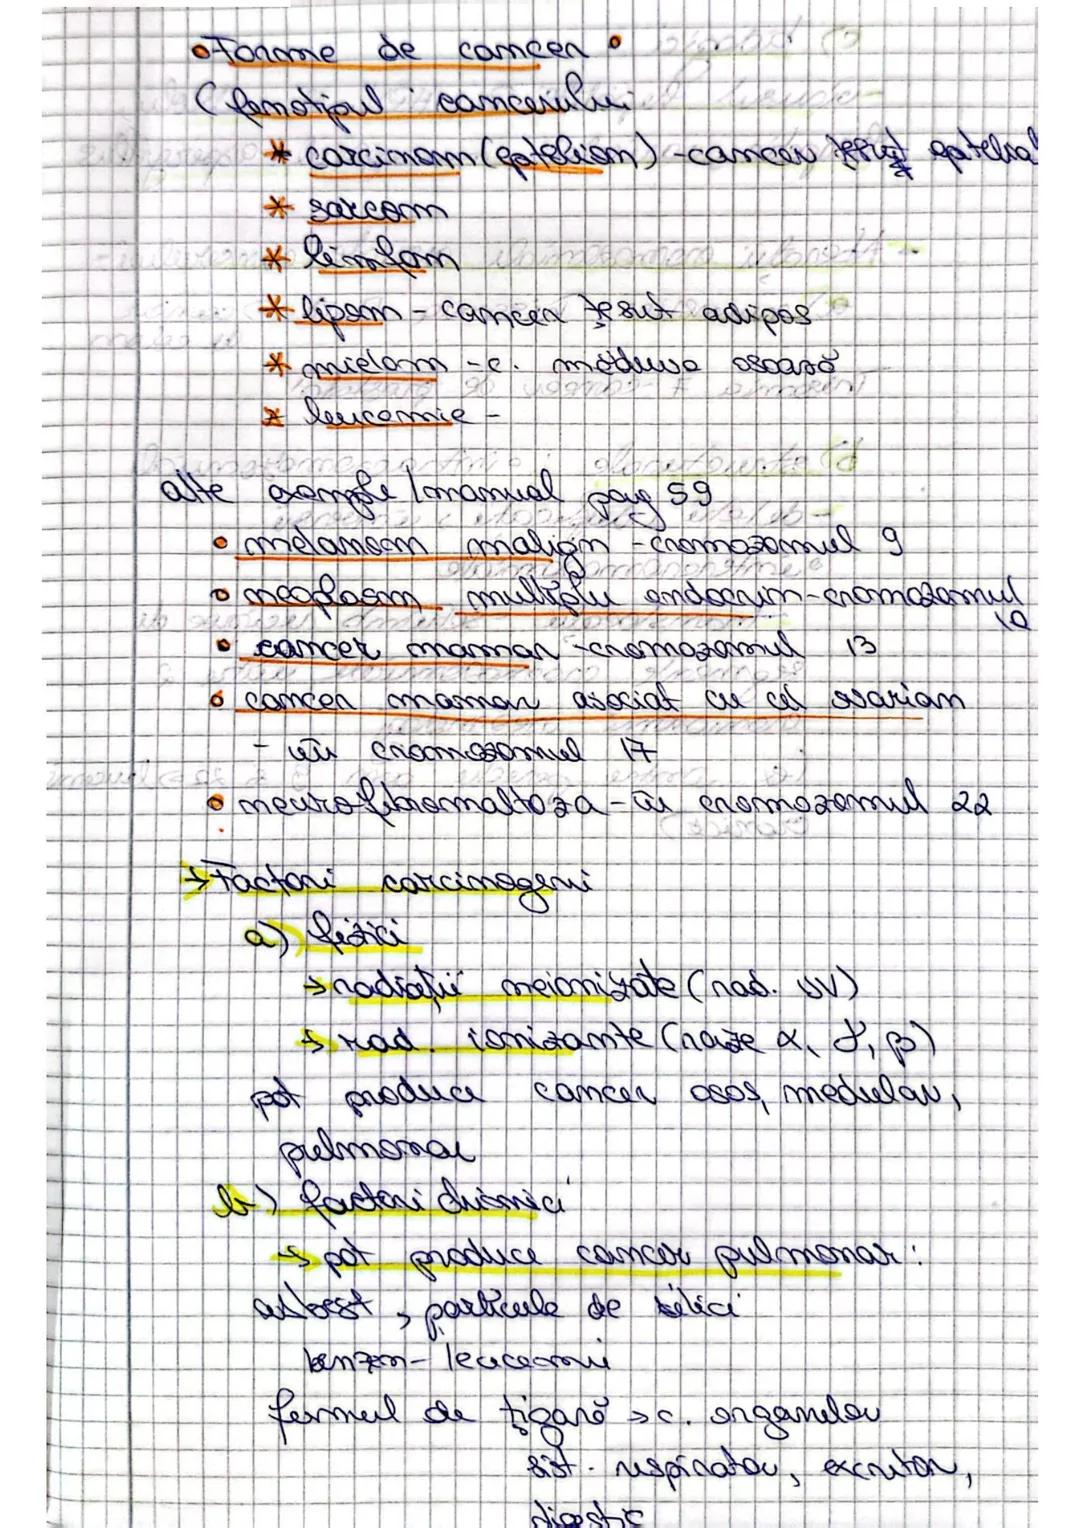 • Forme de cancer •
(fenotipul cancerului
* carcinom (epteliom) - cancer țesut epitelial
* sarcom
* limfom
* lipom - cancer țesut adipos
* mielom - c. măduva osoasă
* leucemie -
alte exemple / manual pag 59
• melanom malign - cromozomul 9
• neoplasm multiplu endocrin - cromozomul 10
• cancer mamar - cromozomul 13
• cancer mamar asociat cu cel ovarian
- cu cromozomul 17
• neurofibromaltoza - cu cromozomul 22
→ Factori carcinogeni
a) fizici
→ radiații neionizate (rad. UV)
→ rad. ionizante (raze α, γ, β)
pot produce cancer osos, medular,
pulmonar
b) factori chimici
→ pot produce cancer pulmonar:
asbest, particule de silici
benzen - leucemii
fumul de țigară → c. organelor
sist. respirator, excretor,
digestiv